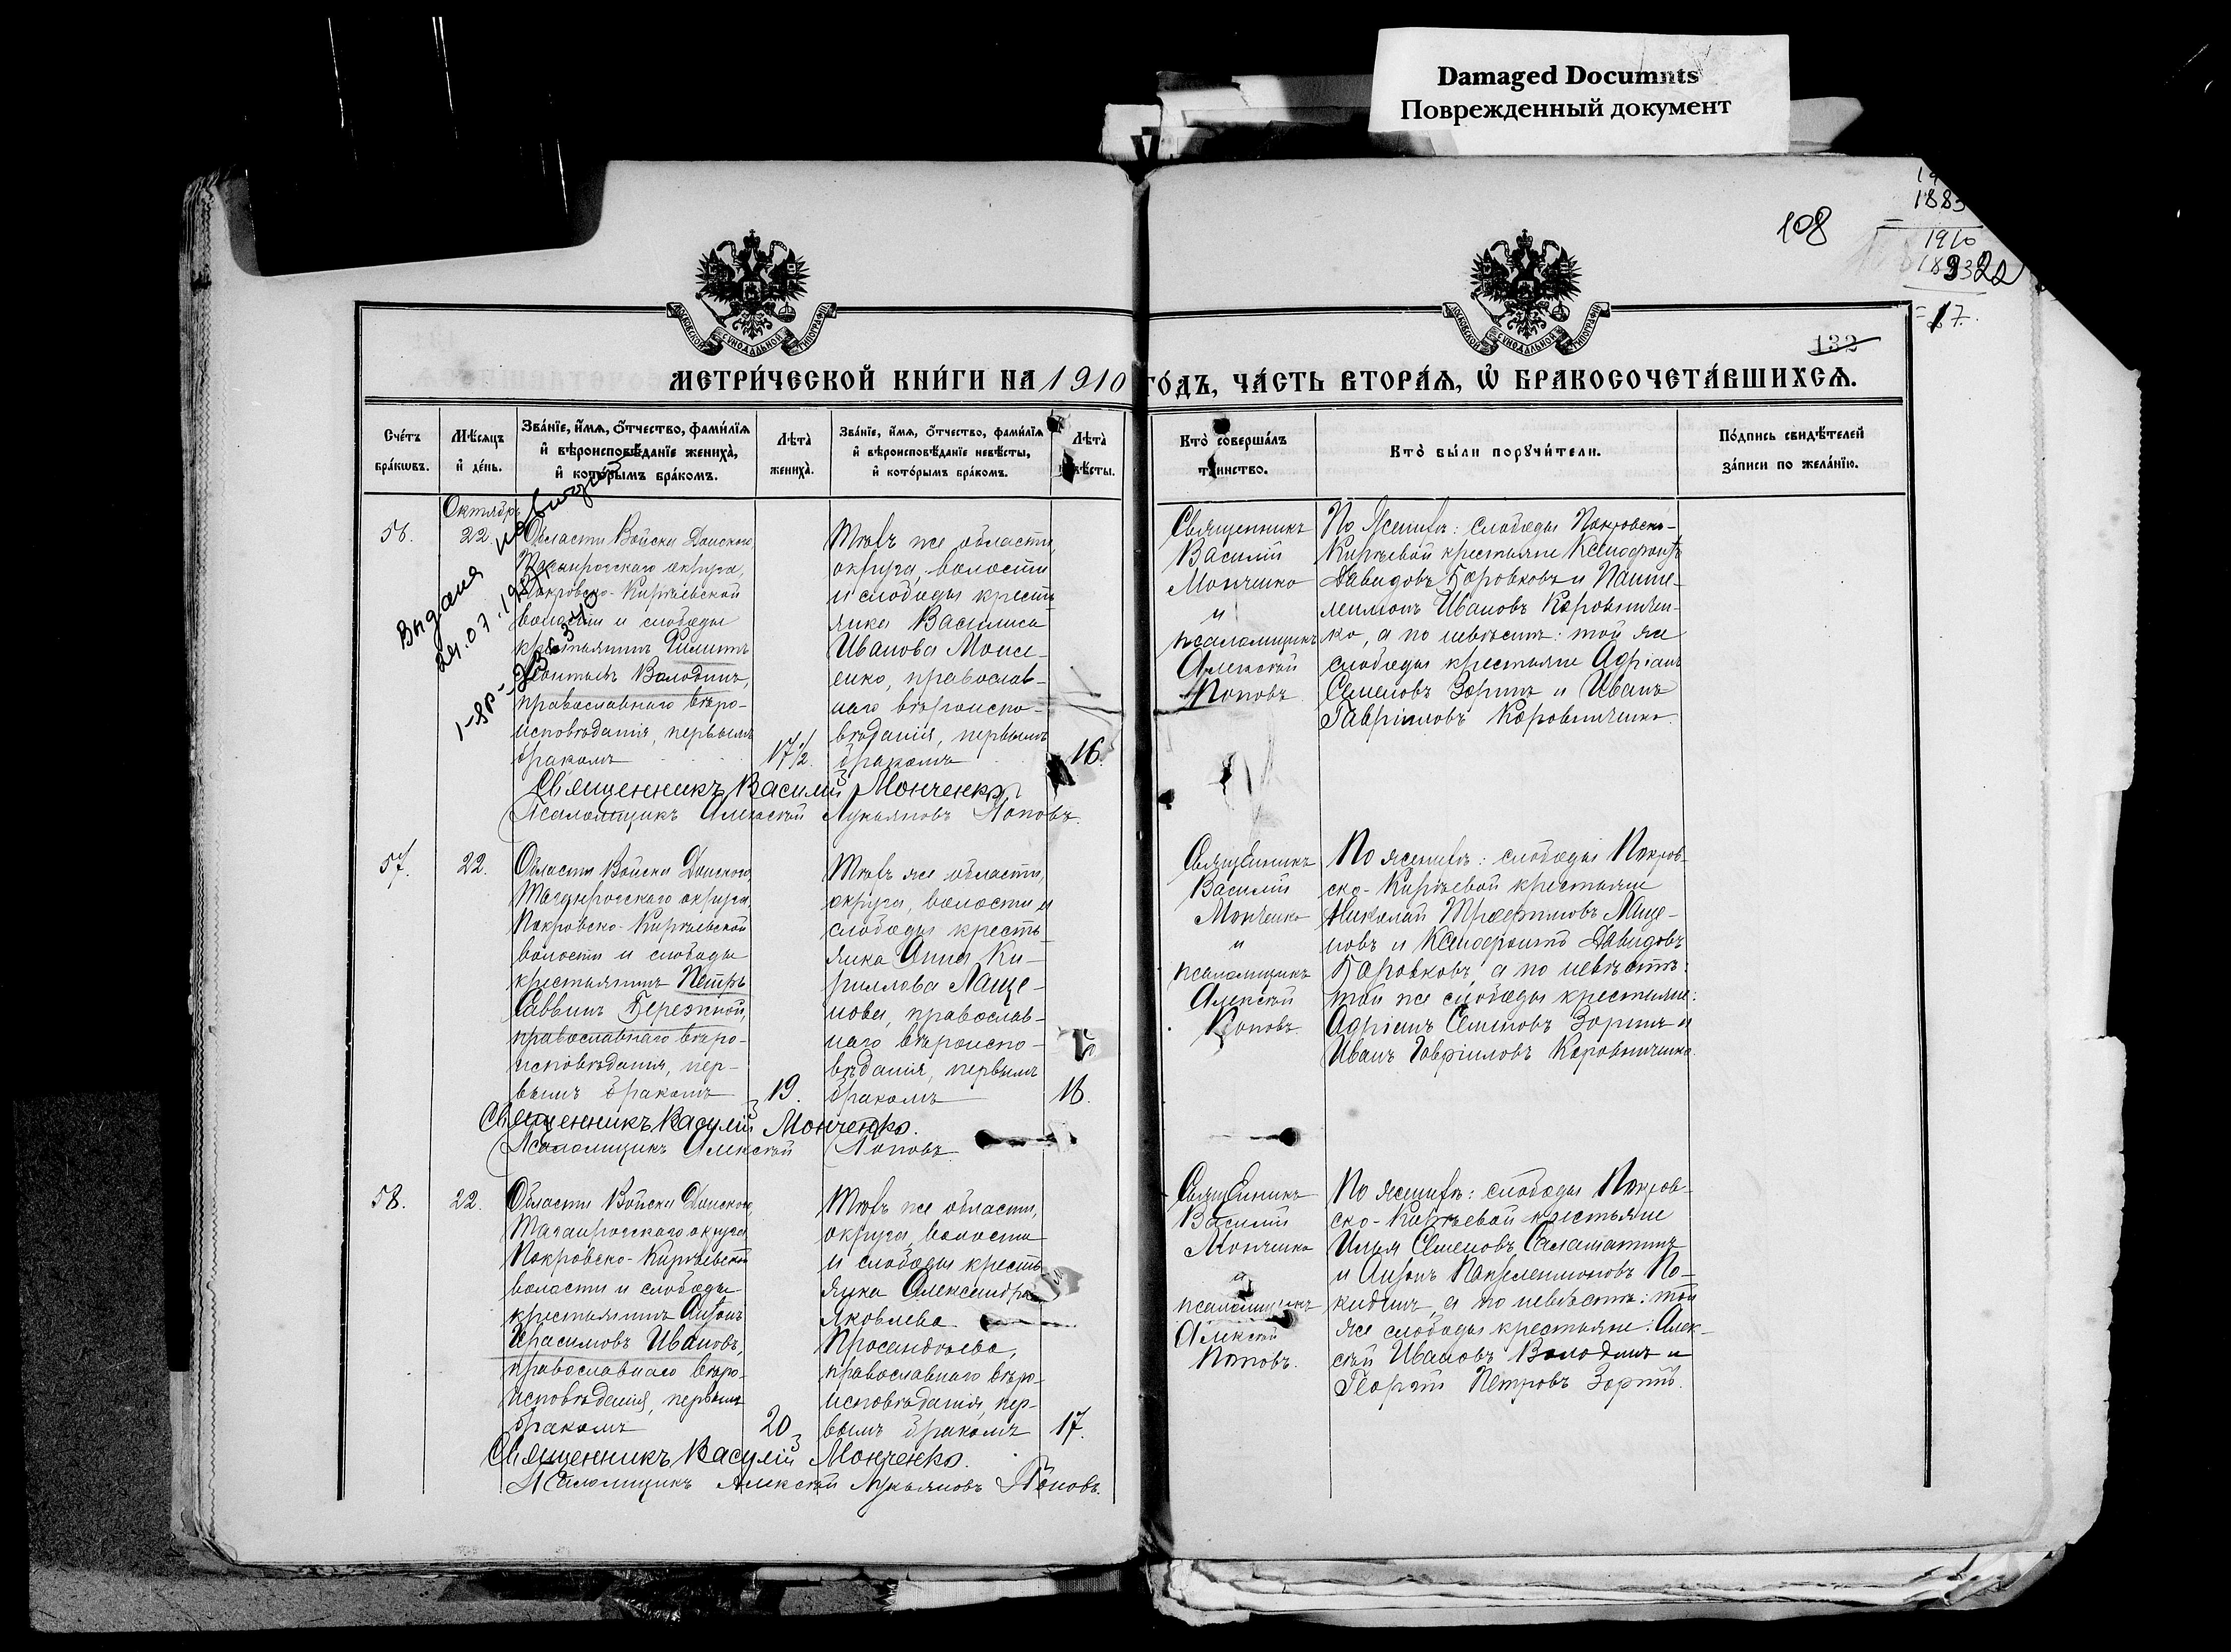 Damaged Documnts
Поврежденный документ
108
1883
1910
132
МОСКОВСКОЙ СѴНОДАЛЬНОЙ ТИПОГРАФІИ
МОСКОВСКОЙ СѴНОДАЛЬНОЙ ТИПОГРАФІИ
МЕТРИ́ЧЕСКОЙ КНИ́ГИ НА 1910 ГО́ДЪ, ЧА́СТЬ ВТОРА́Ѧ, Ѡ҆ БРАКОСОЧЕТА́ВШИХСѦ.
Сче́тъ бра́кѡвъ.
Мѣ́сяцъ и҆ де́нь.
Зва́нїе, и҆́мѧ, ѻ҆́тчество, фами́лїѧ и҆ вѣроисповѣ́данїе жениха̀, и҆ кото́рымъ бра́комъ.
Лѣта̀ жениха̀.
Зва́нїе, и҆́мѧ, ѻ҆́тчество, фами́лїѧ и҆ вѣроисповѣ́данїе невѣ́сты, и҆ кото́рымъ бра́комъ.
Лѣта̀ невѣ́сты.
Кто̀ соверша́лъ та́инство.
Кто̀ бы́ли порꙋчи́тели.
По́дпись свидѣ́телей за́писи по жела́нїю.
Выдана
Октябрь
56.
22.
Области Войска Донского,
Таганрогского округа,
Покровско-Кирѣевской
волости и слободы
крестьянинъ Филиппъ
Леонтьевъ Володинъ,
православнаго вѣро-
исповѣданія, первымъ
бракомъ
17½.
Тѣхъ же области,
округа, волости
и слободы кресть-
янка Василиса
Иванова Моисе-
енко, православ-
наго вѣроиспо-
вѣданія, первымъ
бракомъ
16.
Священникъ
Василій
Монченко
и
псаломщикъ
Алексѣй
Поповъ.
По женихѣ: слободы Покровско-
Кирѣевой крестьяне Ксенофонтъ
Давидовъ Боровковъ и Панте-
леимонъ Ивановъ Коровничен-
ко, а по невѣстѣ: той же
слободы крестьяне Адріанъ
Семеновъ Зоринъ и Иванъ
Гавріиловъ Коровниченко.
Священникъ Василій Монченко
Псаломщикъ Алексѣй Лукьяновъ Поповъ.
57.
22.
Области Войска Донского,
Таганрогского округа,
Покровско-Кирѣевской
волости и слободы
крестьянинъ Петръ
Саввинъ Бережной,
православнаго вѣро-
исповѣданія, пер-
вымъ бракомъ
19.
Тѣхъ же области,
округа, волости и
слободы кресть-
янка Анна Ки-
риллова Лаще-
нова, православ-
наго вѣроиспо-
вѣданія, первымъ
бракомъ
16.
Священникъ
Василій
Монченко
и
псаломщикъ
Алексѣй
Поповъ.
По женихѣ: слободы Покров-
ско-Кирѣевой крестьяне
Николай Трофимовъ Лаще-
новъ и Ксенофонтъ Давидовъ
Боровковъ, а по невѣстѣ:
той же слободы крестьяне:
Адріанъ Семеновъ Зоринъ и
Иванъ Гавріиловъ Коровниченко.
Священникъ Василій Монченко.
Псаломщикъ Алексѣй Поповъ
58.
22.
Области Войска Донского,
Таганрогского округа
Покровско-Кирѣевской
волости и слободы
крестьянинъ Антонъ
Герасимовъ Ивановъ,
православнаго вѣро-
исповѣданія, первымъ
бракомъ
20
Тѣхъ же области,
округа, волости
и слободы кресть-
янка Александра
Яковлева
Просандѣева,
православнаго вѣро-
исповѣданія, пер-
вымъ бракомъ
17.
Священникъ
Василій
Монченко
и
псаломщикъ
Алексѣй
Поповъ.
По женихѣ: слободы Покров-
ско-Кирѣевой крестьяне
Илья Семеновъ Саламатинъ
и Антонъ Пантелеимоновъ По-
кидинъ, а по невѣстѣ: той
же слободы крестьяне: Алек-
сѣй Ивановъ Володинъ и
Георгій Петровъ Зоринъ.
Священникъ Василій Монченко.
Псаломщикъ Алексѣй Лукьяновъ Поповъ.